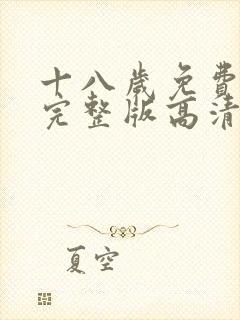 十八歲免費
完整版高清
夏空